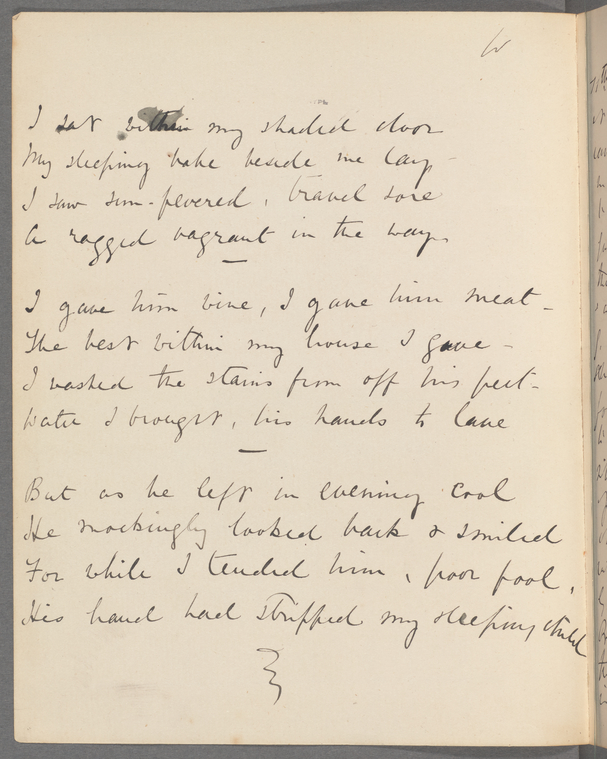 I sat within my shaded door
My sleeping babe beside me lay -
I saw sun-fevered, travel sore
A ragged vagrant in the way.
I gave him wine, I gave him meat -
The best within my house I gave -
I washed the stains from off his feet -
Water I brought, his hands to lave
But as he left in evening cool
He mockingly looked back & smiled
For while I tended him, poor fool,
His hand had stripped my sleeping child